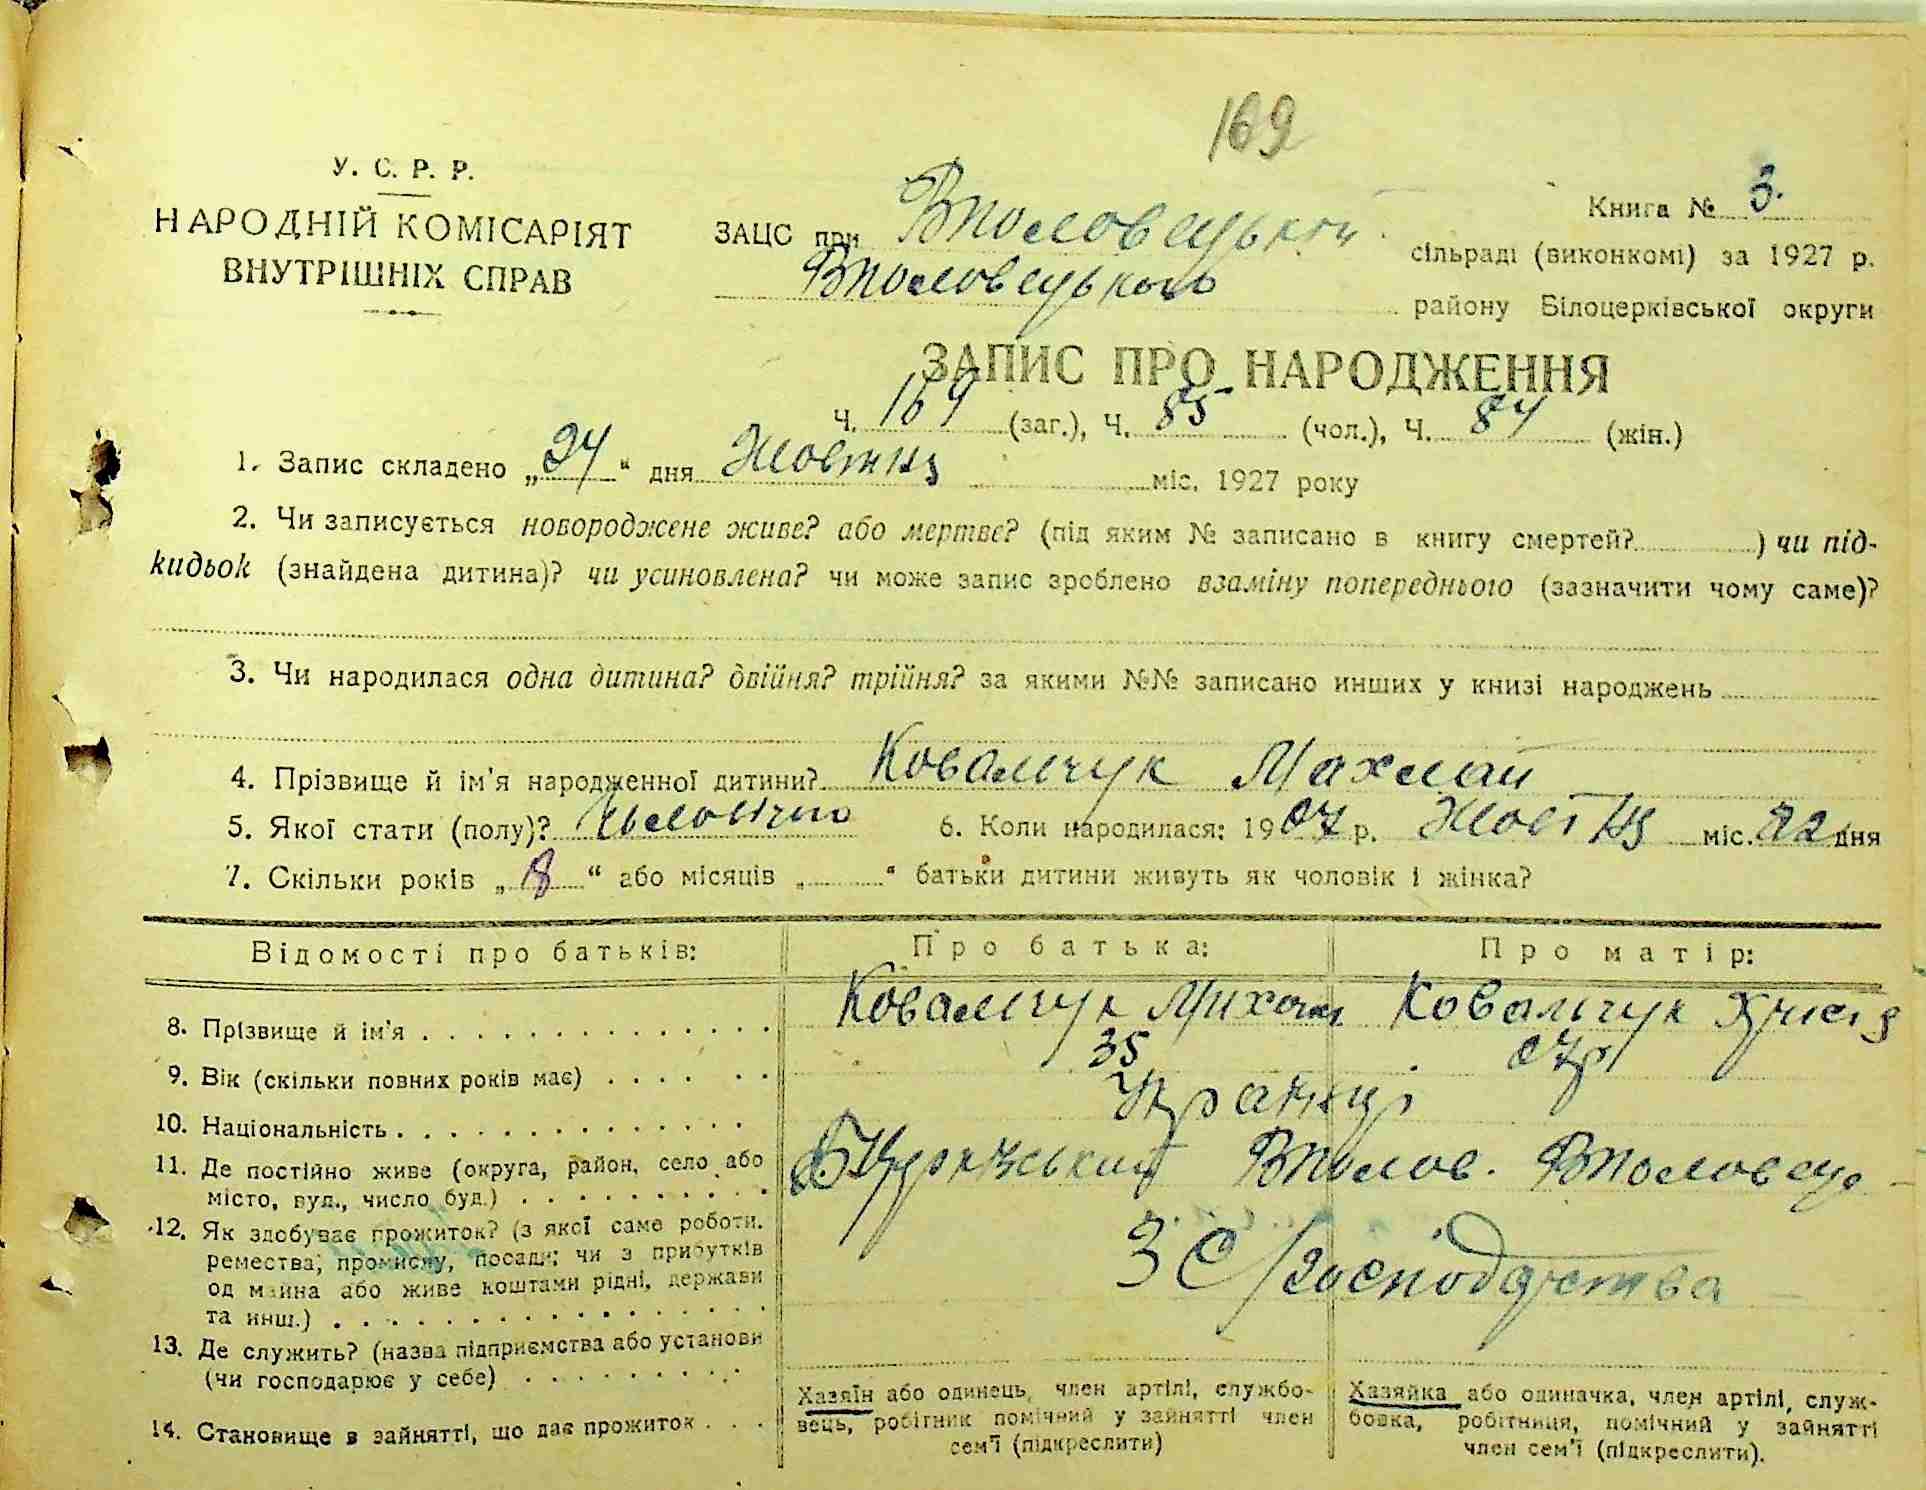 169
У. С. Р. Р.
НАРОДНІЙ КОМІСАРІЯТ
ВНУТРІШНІХ СПРАВ
Книга № 3.
ЗАЦС при Вполовецькій сільраді (виконкомі) за 1927 р.
Вполовецького району Білоцерківської округи
ЗАПИС ПРО НАРОДЖЕННЯ
Ч. 169 (заг.), Ч. 85 (чол.), Ч. 84 (жін.)
1. Запис складено „24“ дня Жовтня міс. 1927 року
2. Чи записується новороджене живе? або мертве? (під яким № записано в книгу смертей? ) чи під-
кидьок (знайдена дитина)? чи усиновлена? чи може запис зроблено взаміну попереднього (зазначити чому саме)?
3. Чи народилася одна дитина? двійня? трійня? за якими №№ записано инших у книзі народжень
4. Прізвище й ім'я народженної дитини? Ковальчук
5. Якої стати (полу)? Чоловічно 6. Коли народилася: 1927 р. Жовтня міс. 22 дня
7. Скільки років „8“ або місяців „ “ батьки дитини живуть як чоловік і жінка?
Відомості про батьків: Про батька: Про матір:
8. Прізвище й ім'я Ковальчук Ковальчук
9. Вік (скільки повних років має) 35 27р
10. Національність Українці
11. Де постійно живе (округа, район, село або
місто, вул., число буд.) Вполов. Вполовець
12. Як здобуває прожиток? (з якої саме роботи.
ремества, промислу, посади; чи з прибутків
од майна або живе коштами рідні, держави
та инш.) З С/господарства
13. Де служить? (назва підприємства або установи
(чи господарює у себе)
14. Становище в зайнятті, що дає прожиток
Хазяїн або одинець, член артілі, службо-
вець, робітник помічний у зайнятті член
сем'ї (підкреслити)
Хазяйка або одиначка, член артілі, служ-
бовка, робітниця, помічний у зайнятті
член сем'ї (підкреслити).